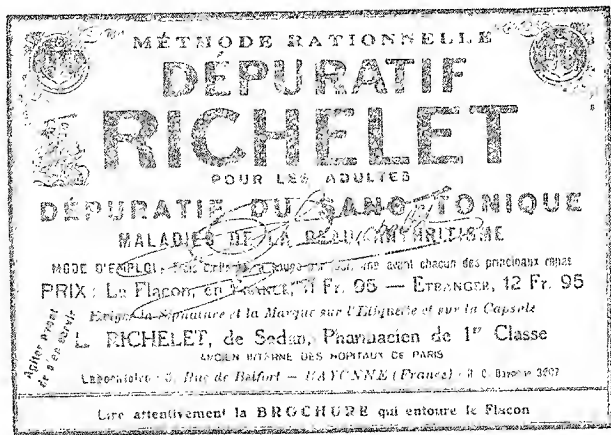 MÉTHODE RATIONNELLE
DÉPURATIF
RICHELET
POUR LES ADULTES
DÉPURATIF DU SANG-TONIQUE
MALADIES DE LA PEAU, ARTHRITISME
MODE D'EMPLOI: Trois cuillers à soupe par jour, une avant chacun des principaux repas
PRIX: Le Flacon, en FRANCE, 11 Fr. 95 — ETRANGER, 12 Fr. 95
Exiger la Signature et la Marque sur l'Etiquette et sur la Capsule
L. RICHELET, de Sedan, Pharmacien de 1re Classe
ANCIEN INTERNE DES HOPITAUX DE PARIS
Laboratoire: Rue de Belfort — BAYONNE (France)
Agiter avant
de s'en servir
Lire attentivement la BROCHURE qui entoure le Flacon